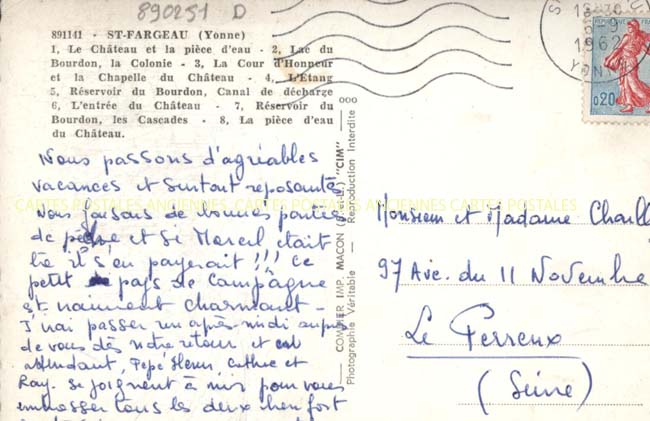 890251 D
891141 - ST-FARGEAU (Yonne)
1, Le Château et la pièce d'eau - 2, Lac du
Bourdon, la Colonie - 3, La Cour d'Honneur
et la Chapelle du Château - 4, L'Etang
5, Réservoir du Bourdon, Canal de décharge
6, L'entrée du Château - 7, Réservoir du
Bourdon, les Cascades - 8, La pièce d'eau
du Château.
Nous passons d'agréables
vacances et surtout reposantes
nous faisons de bonnes parties
de pêche et si Marcel était
là il s'en payerait !!! Ce
petit pays de campagne
est vraiment charmant -
J'irai passer un après-midi auprès
de vous dès notre retour et en
attendant, Pépé Henri, Cathie et
Ray. se joignent à moi pour vous
embrasser tous les deux bien fort
CARTES POSTALES ANCIENNES CARTES POSTALES ANCIENNES CARTES POSTALES
COMBIER IMP. MACON (S.-et-L.) "CIM"
Photographie Véritable - Reproduction Interdite
1962
YONNE
0,20
Monsieur et Madame
97 Ave. du 11 Novembre
Le Perreux
(Seine)